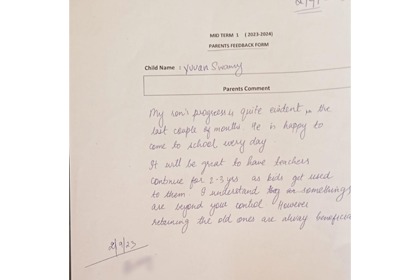 MID TERM 1 (2023-2024)
PARENTS FEEDBACK FORM
Child Name : Yuvan Swamy
Parents Comment
My son's progress is quite evident in the
last couple of months. He is happy to
come to school every day
It will be great to have teachers
continue for 2-3 yrs as kids get used
to them I understand somethings
are beyond your control However
retaining the old ones are alway beneficial
2/9/23